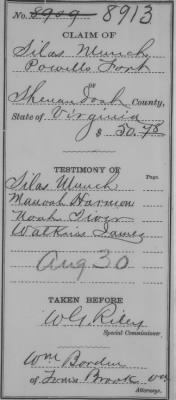 No. 8909 8913
CLAIM OF
Silas Munch
Powells Fort
OF
Shenandoah County,
State of Virginia
$ 50.75
TESTIMONY OF Page.
Silas Munch
Manoah Harmon
Noah
Watkins James
Aug 30
TAKEN BEFORE
W. G. Riley
Special Commissioner.
Wm Borden
of Toms Brook Va
Attorney.